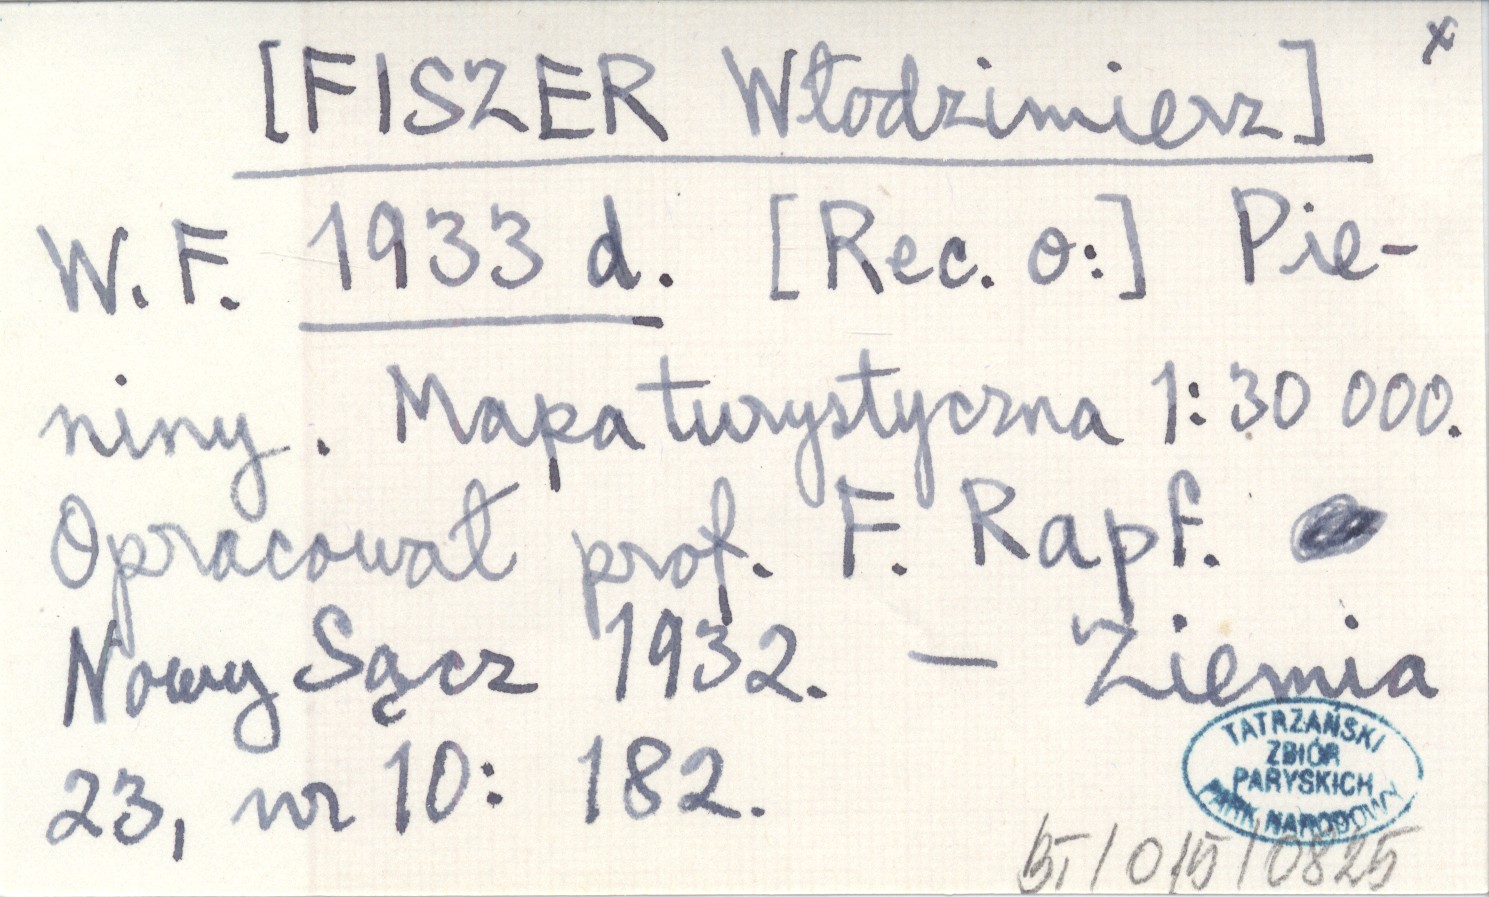 x
[FISZER Włodzimierz]
W. F. 1933 d. [Rec. o:] Pie-
niny. Mapa turystyczna 1:30 000.
Opracował prof. F. Rapf.
Nowy Sącz 1932. — Ziemia
23, nr 10: 182.
TATRZAŃSKI
ZBIÓR
PARYSKICH
PARK NARODOWY
BT/015/0825